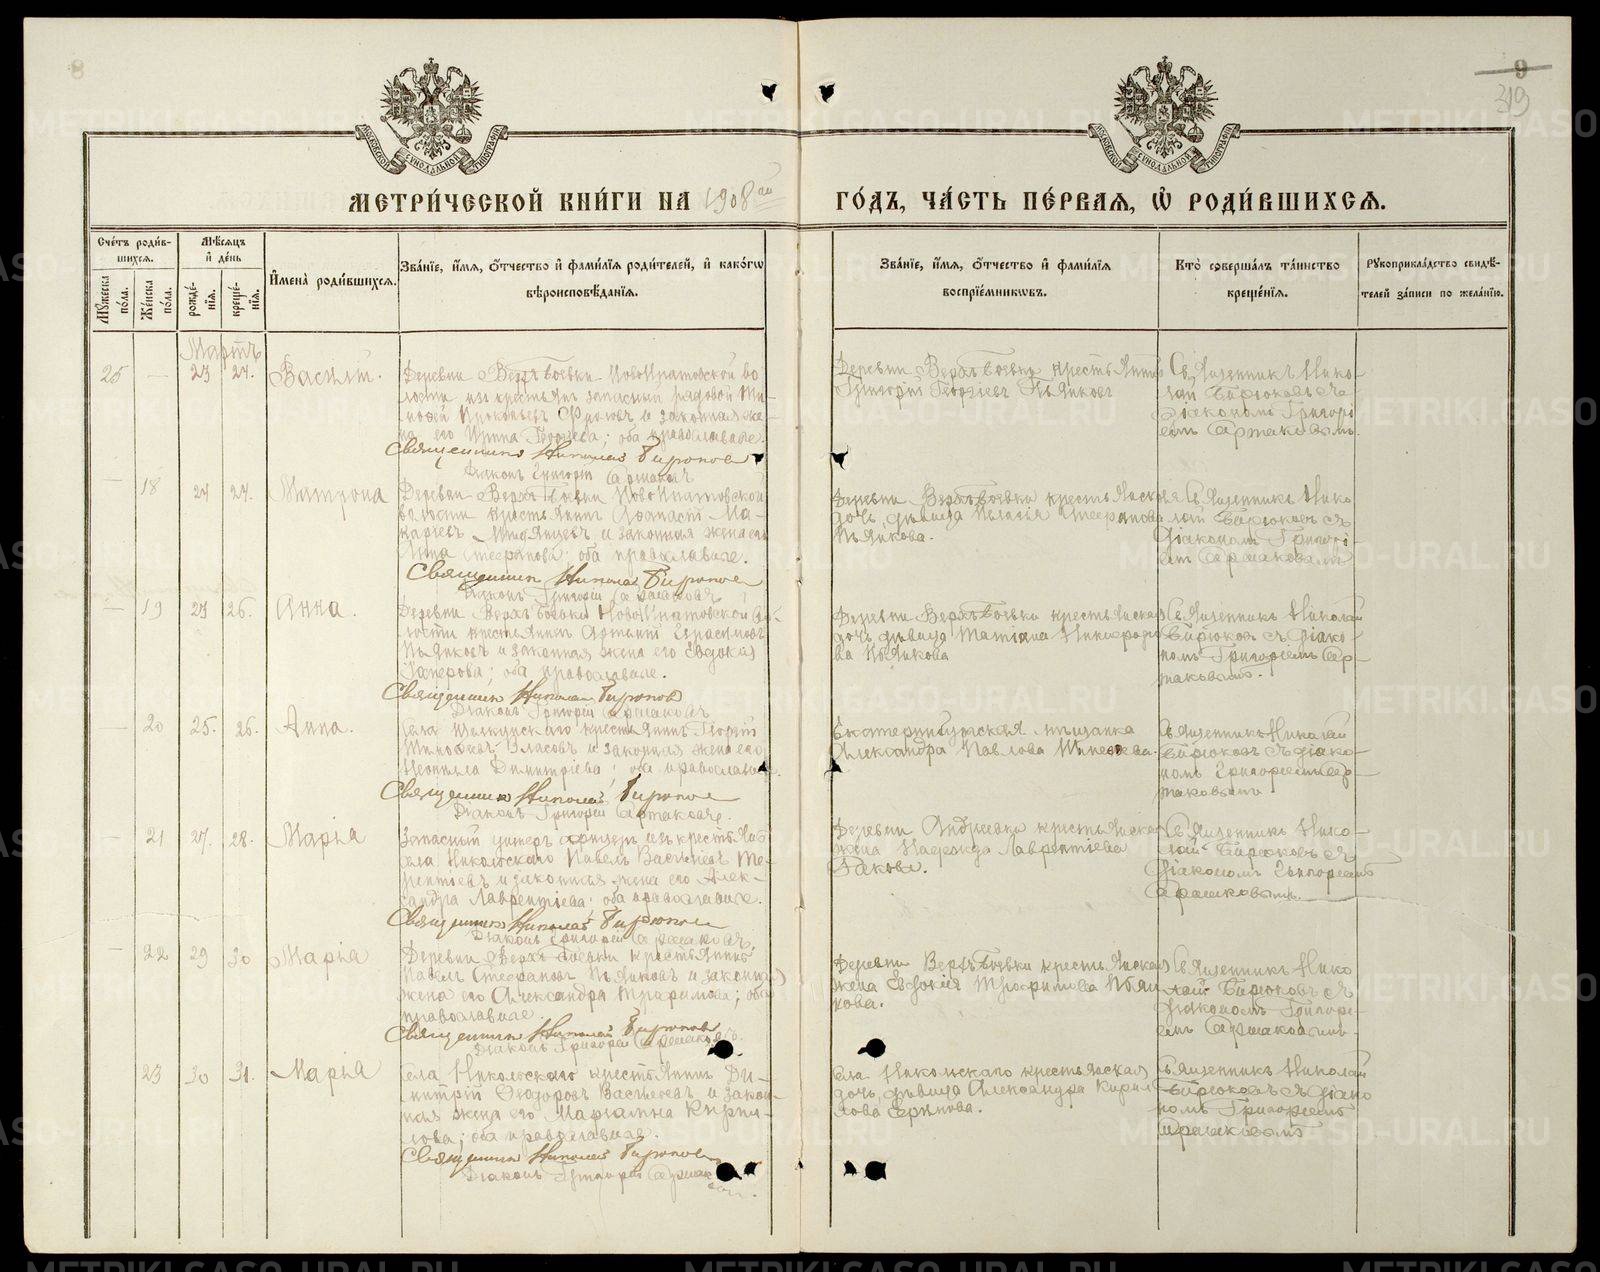 8
9
319
МОСКОВСКОЙ СѴНОДАЛЬНОЙ ТИПОГРАФІИ
МОСКОВСКОЙ СѴНОДАЛЬНОЙ ТИПОГРАФІИ
МЕТРИ́ЧЕСКОЙ КНИ́ГИ НА 1908 ГО́ДЪ, ЧА́СТЬ ПЕ́РВАЯ, Ѡ҆ РОДИ́ВШИХСЯ.
Сче́тъ роди́в-
шихся.
Мꙋ́жеска по́ла.
Же́нска по́ла.
Мѣ́сяцъ и҆ де́нь
рожде́-нїя.
креще́-нїя.
И҆мена̀ роди́вшихся.
Зва́нїе, и҆́мя, ѻ҆́тчество и҆ фами́лїя роди́телей, и҆ како́гѡ
вѣроисповѣ́данїя.
Зва́нїе, и҆́мя, ѻ҆́тчество и҆ фами́лїя
воспрїе́мникѡвъ.
Кто̀ соверша́лъ та́инство
креще́нїя.
Рꙋкоприкла́дство свидѣ́-
телей за́писи по жела́нїю.
Мартъ
25 — 23 24. Василій.
Деревни Верхъ Боевки Новоипатовской во
лости изъ крестьянъ запасный рядовой Ти-
мофей Прокопьевъ и законная же-
на его Ирина Георгіева; оба православные.
Священникъ Николай Бирюковъ
Діаконъ Григорій
Деревни Верхъ Боевки крестьянинъ
Григорій Георгіевъ Пьянковъ
Священникъ Нико-
лай Бирюковъ съ
діакономъ Григорі
емъ
— 18 24 24. Матрона
Деревни Верхъ Боевки Новоипатовской
волости крестьянинъ Ма-
каріевъ и законная жена его
Анна Стефанова; оба православные.
Священникъ Николай Бирюковъ
Діаконъ Григорій
Деревни Верхъ Боевки крестьянская
дочь, дѣвица Стефанова
Пьянкова.
Священникъ Нико
лай Бирюковъ съ
діакономъ Григорі-
— 19 24 26. Анна.
Деревни Верхъ Боевки Новоипатовской во-
лости крестьянинъ Герасимовъ
Пьянковъ и законная жена его Евдокія
оба православные.
Священникъ Николай Бирюковъ
Діаконъ Григорій
Деревни Верхъ Боевки крестьянская
дочь, дѣвица Татіана
ва Пьянкова
Священникъ Николай
Бирюковъ съ діако-
номъ Григоріемъ
— 20 25. 26. Анна.
Села крестьянинъ Георгій
Тимофеевъ Власовъ и законная жена его
Неонила Димитріева; оба православные.
Священникъ Николай Бирюковъ
Діаконъ Григорій
Екатеринбургская мѣщанка
Александра Павлова
Священникъ Николай
Бирюковъ съ діако-
номъ Григоріемъ
— 21 27. 28. Марія
Запасный унтеръ офицеръ изъ крестьянъ
села Никольскаго Павелъ Васильевъ Те-
рентьевъ и законная жена его Алек-
сандра Лаврентіева; оба православные.
Священникъ Николай Бирюковъ
Діаконъ Григорій
Деревни Андреевки крестьянская
жена Надежда Лаврентіева
Священникъ Нико-
лай Бирюковъ съ
діакономъ Григоріемъ
— 22 29 30 Марія
Деревни Верхъ Боевки крестьянинъ
Павелъ Стефановъ Пьянковъ и законная
жена его Александра Трофимова; оба
православные.
Священникъ Николай Бирюковъ
Діаконъ Григорій
Деревни Верхъ Боевки крестьянская
жена Евдокія Трофимова Пьян
кова.
Священникъ Нико
лай Бирюковъ съ
діакономъ Григорі-
емъ
23 30 31. Марія
Села Никольскаго крестьянинъ Ди-
митрій Феодоровъ Васильевъ и закон-
ная жена его Маріанна Кирил-
лова; оба православные.
Священникъ Николай Бирюковъ
Діаконъ Григорій
Села Никольскаго крестьянская
дочь, дѣвица Александра Кирил
лова
Священникъ Николай
Бирюковъ съ діако
номъ Григоріемъ
METRIKI.GASO-URAL.RU